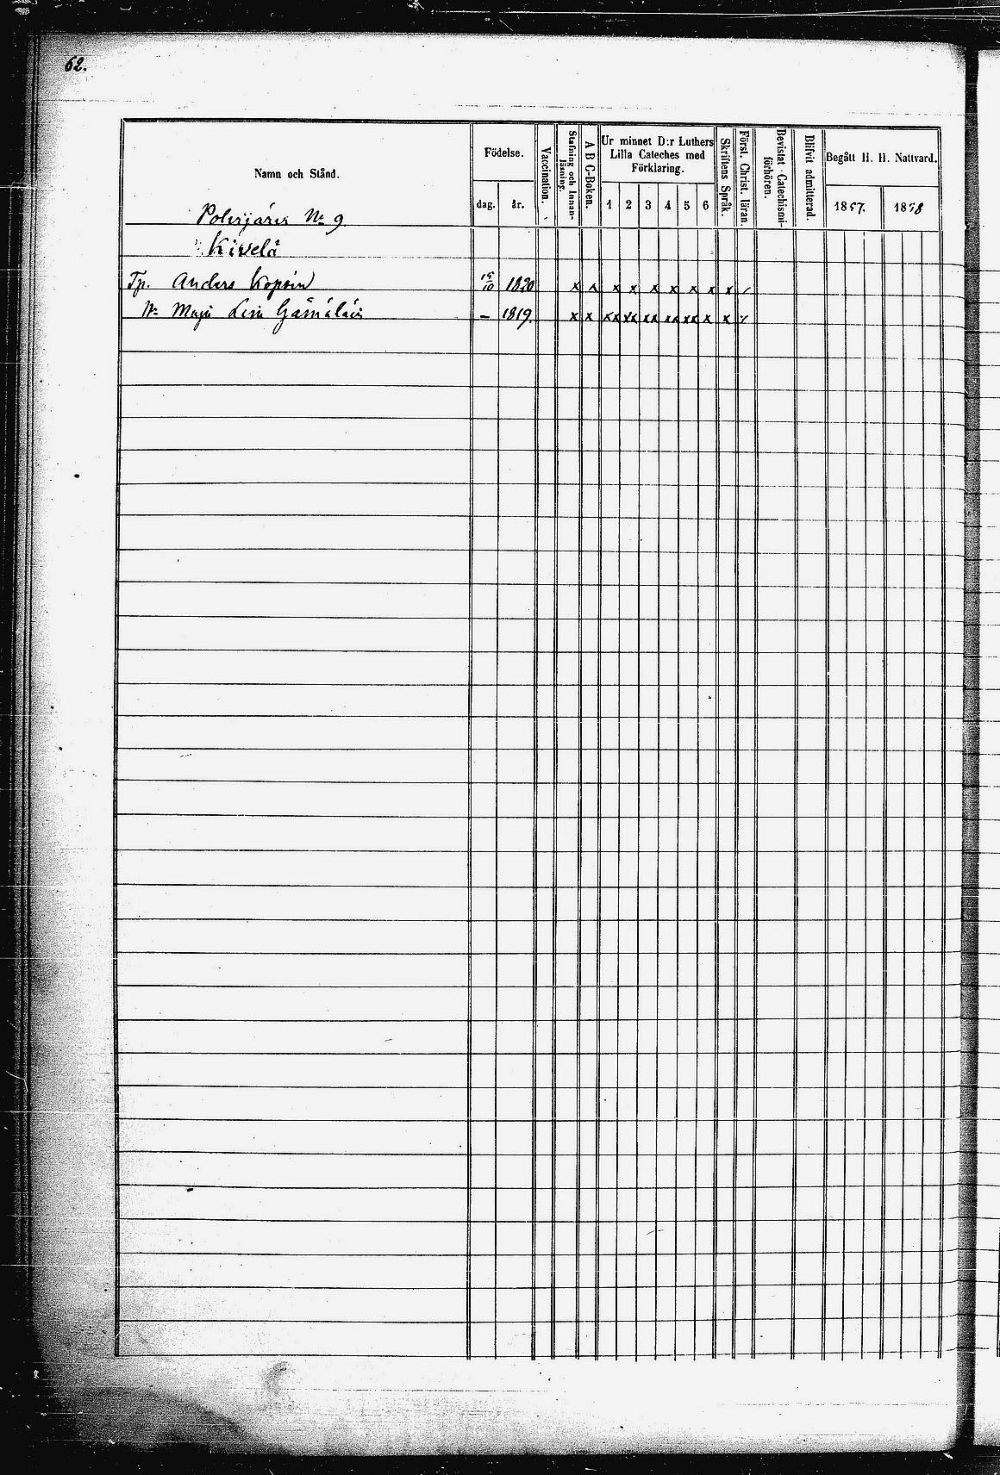 62.
Namn och Stånd.
Födelse.
dag. år.
Vaccination.
Stafning och Innan-läsning.
A B C-Boken.
Ur minnet D:r Luthers
Lilla Cateches med
Förklaring.
1 2 3 4 5 6
Skriftens Språk.
Först. Christ. läran.
Bevistat Catechismi-förhören.
Blifvit admitterad.
Begått H. H. Nattvard.
1857. 1858
No 9
Kivelä
Tp. Anders 15/10 1820 x x x x x x x x x
Maja Lisa – 1819. x x xx xx xx xx xx x x